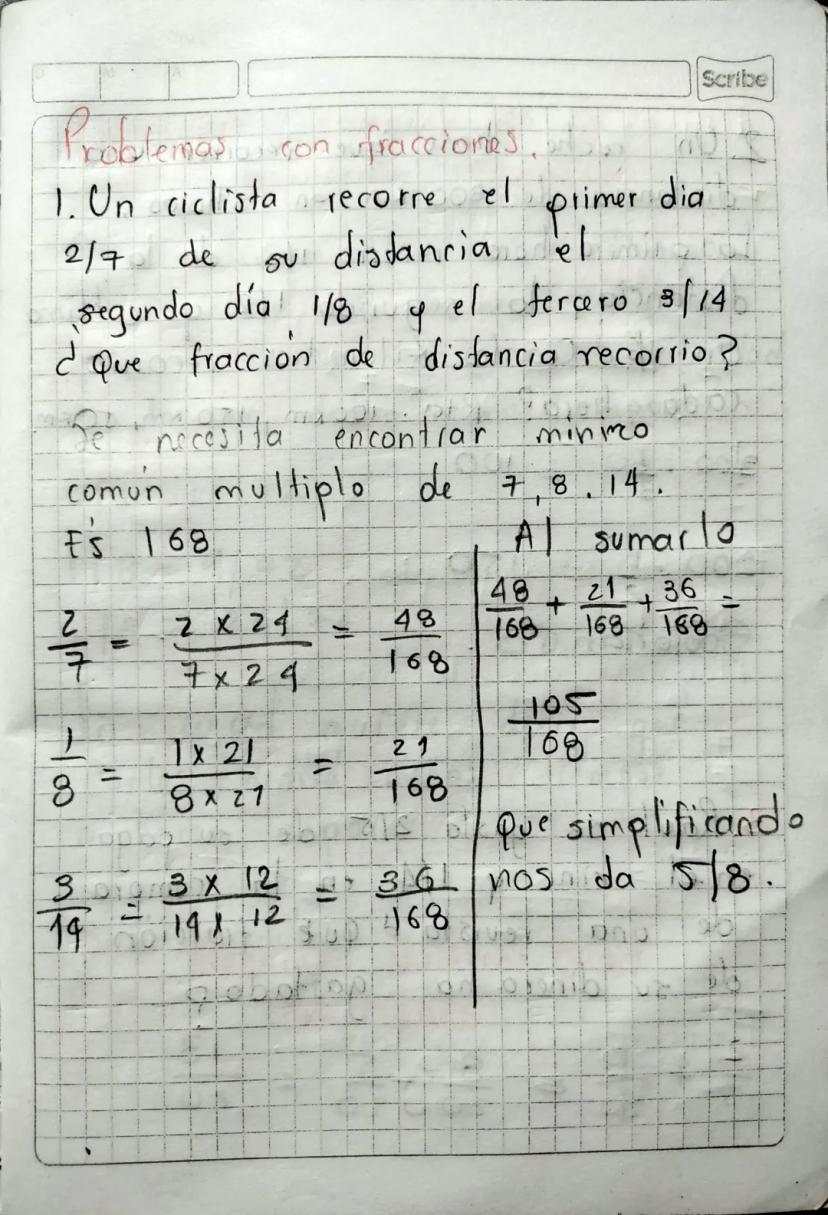 Scribe
Problemas con fracciones.
1. Un ciclista recorre el primer dia
2/7 de su distancia el
segundo día 1/8 y el tercero 3/14
¿ Que fracción de distancia recorrio?
Se necesita encontrar minimo
común multiplo de 7, 8. 14.
Es 168
2/7 = 2 x 24 / 7 x 24 = 48/168
1/8 = 1 x 21 / 8 x 21 = 21/168
3/14 = 3 x 12 / 14 x 12 = 36/168
Al sumarlo
48/168 + 21/168 + 36/168 =
105/168
Que simplificando
nos da 5/8.